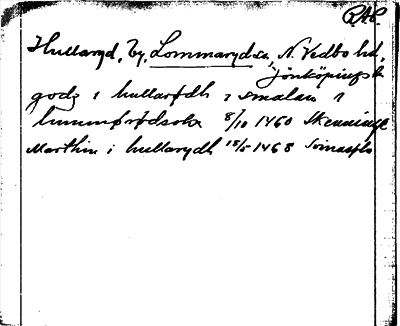 RAP.
Hullaryd, by, Lommaryds sn, N. Vedbo hd,
Jönköpings l
godz i hullarødh i smalan i
lummørødsokn 8/10 1460 Skenninge
Marthin i hullarydh 18/5 1468